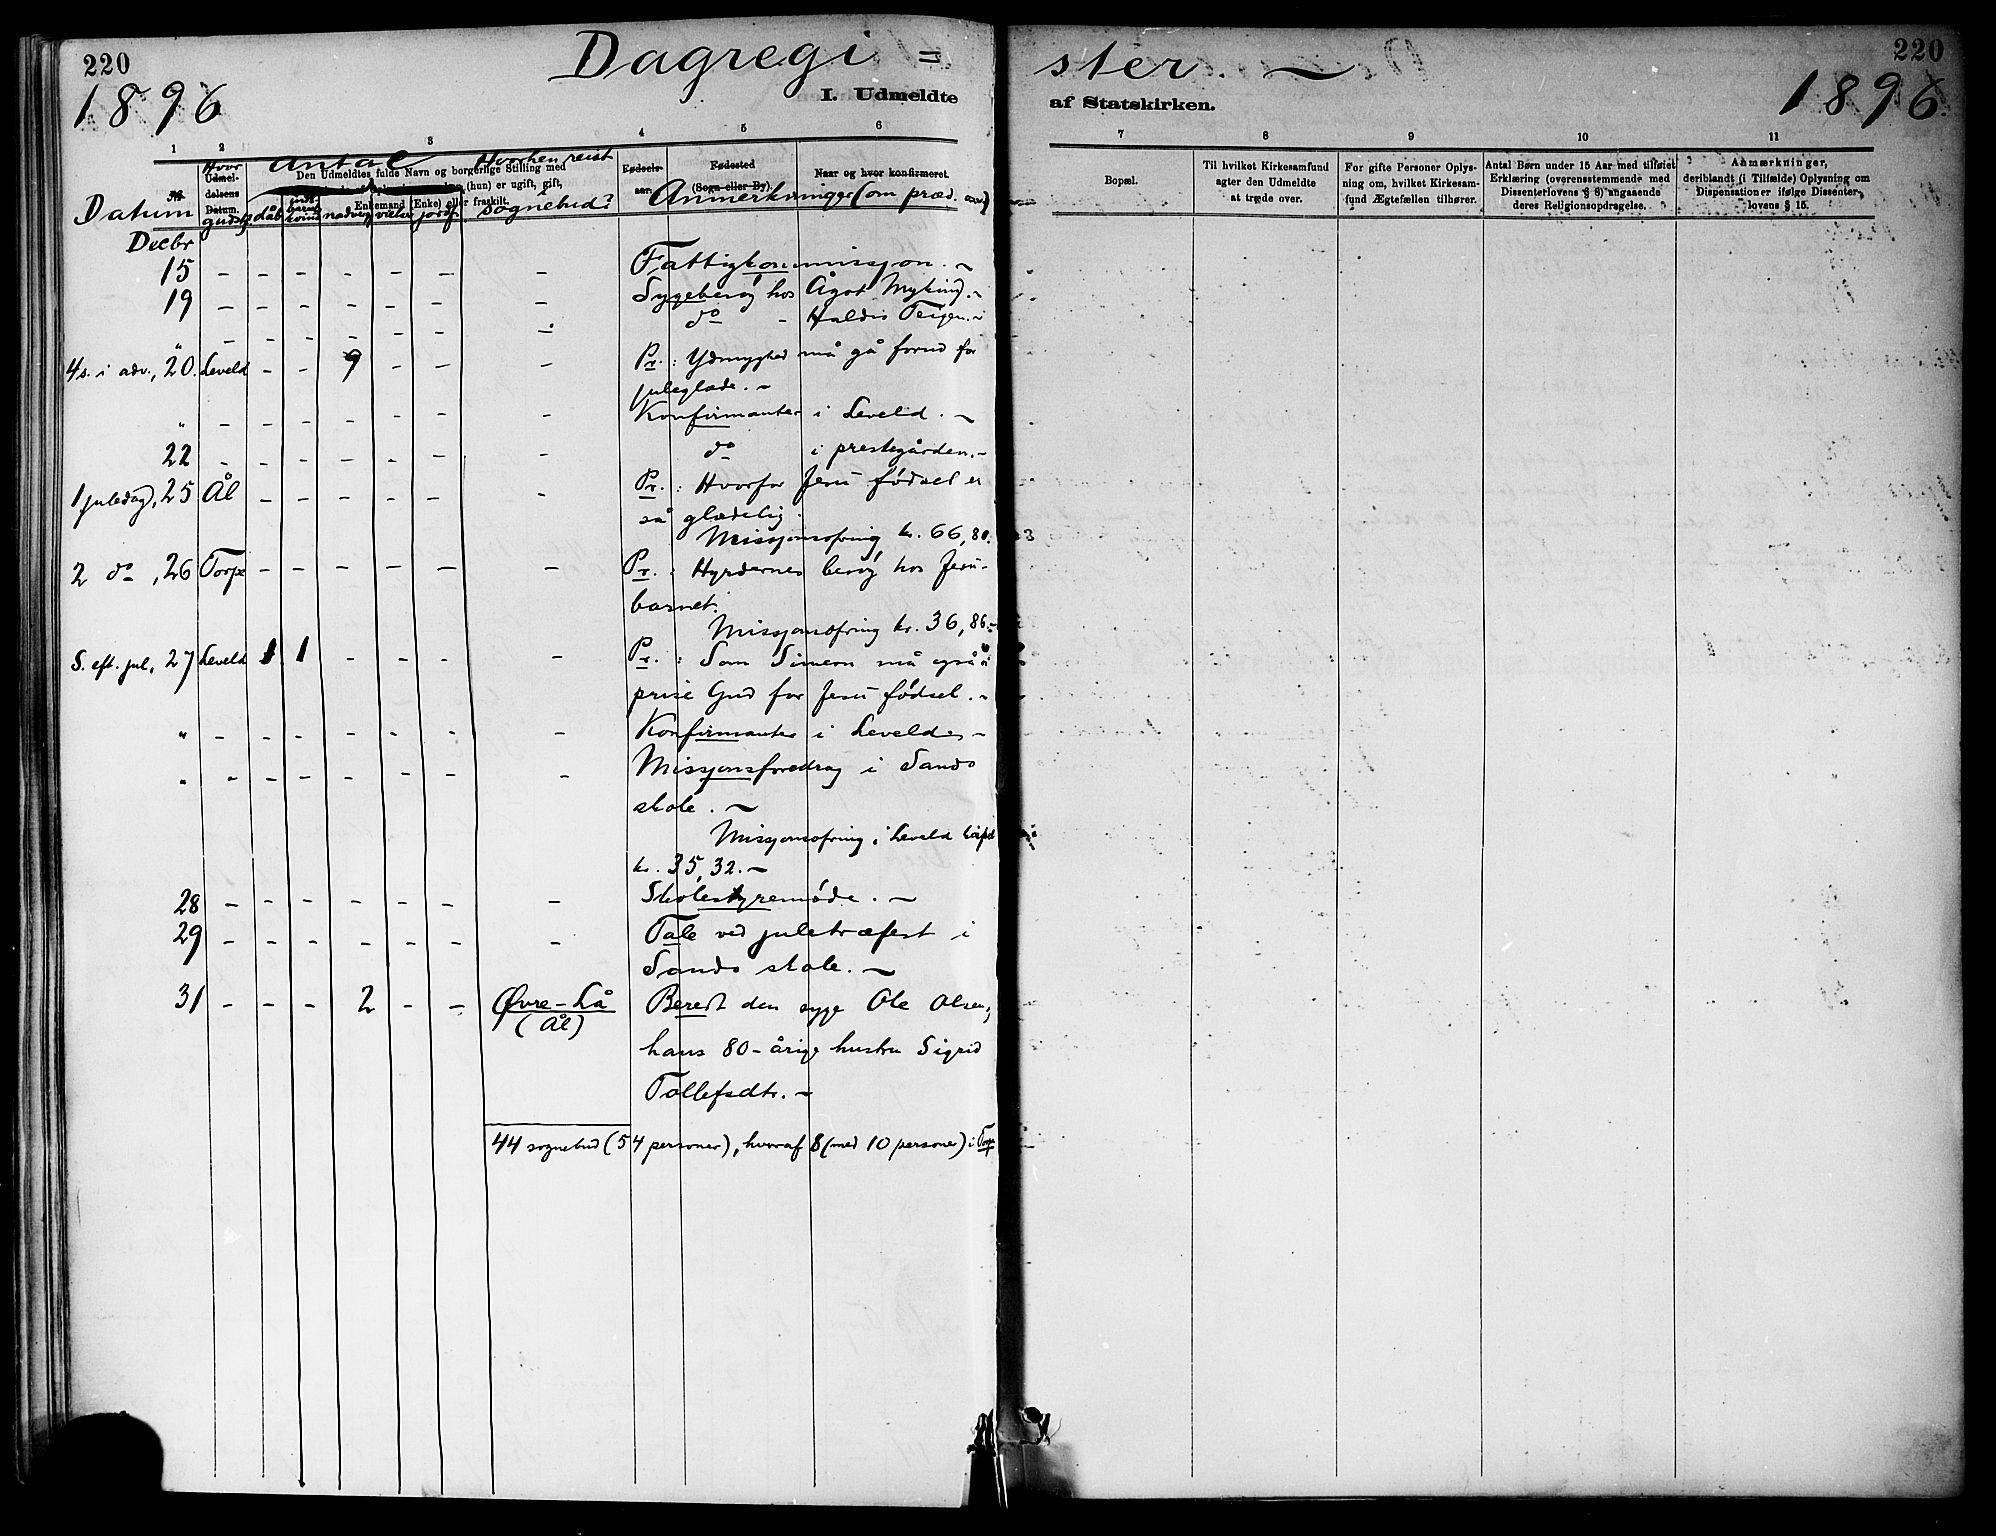 220
Dagregi =
1896
I. Udmeldte
1 2 3 4 5 6
Datum
Hvor gudstj.
Udmeldelsens Datum.
Antal
Den Udmeldtes fulde Navn og borgerlige Stilling med
(hun) er ugift, gift,
Enkemand (Enke) eller fraskilt.
dåb
nadverg
vielse
jordf
Hvorhen reist
i
sognebud?
Fødselsaar.
Fødested
(Sogn eller By).
Naar og hvor konfirmeret.
Anmerkninger (om præd.
Decbr
15 - - - - - - - Fattigkommissjon. -
19 - - - - - - - Sygebesøg hos Ågot Myking. -
" - - - - - - - do - Haldis Teigen. -
4 s. i adv., 20. Leveld - - 9 - - - Pr.: Ydmyghed må gå forud for
juleglæde. -
" - - - - - - - Konfirmanter i Leveld. -
22 - - - - - - - do i prestegården. -
1 juledag, 25 Ål - - - - - - Pr.: Hvorfor Jesu fødsel er
så glædelig.
Missjonsofring kr. 66,80.
2 do, 26 Torpe - - - - - - Pr.: Hyrdernes besøg hos Jesu-
barnet.
Missjonsofring kr. 36,86. -
S. eft. jul, 27 Leveld 1 1 - - - - Pr.: Som Simeon må også vi
prise Gud for Jesu fødsel. -
" - - - - - - - Konfirmanter i Leveld. -
" - - - - - - - Missjonsforedrag i Sando
skole. -
Missjonsofring i Leveld kapel
kr. 35,32. -
28 - - - - - - - Skolestyremøde. -
29 - - - - - - - Tale ved juletræfest i
Sando skole. -
31 - - - 2 - - Øvre-Lå Beredt den syge Ole Olsen,
(Ål)
hans 80-årige hustru Sigrid
Tollefsdtr. -
44 sognebud (54 personer), hvoraf 8 (med 10 personer) i Torpe
220
ster. -
1896.
af Statskirken.
7 8 9 10 11
Bopæl.
Til hvilket Kirkesamfund
agter den Udmeldte
at træde over.
For gifte Personer Oplys-
ning om, hvilket Kirkesam-
fund Ægtefællen tilhører.
Antal Børn under 15 Aar med tilføiet
Erklæring (overensstemmende med
Dissenterlovens § 8) angaaende
deres Religionsopdragelse.
Anmærkninger,
deriblandt (i Tilfælde) Oplysning om
Dispensationer ifølge Dissenter-
lovens § 15.